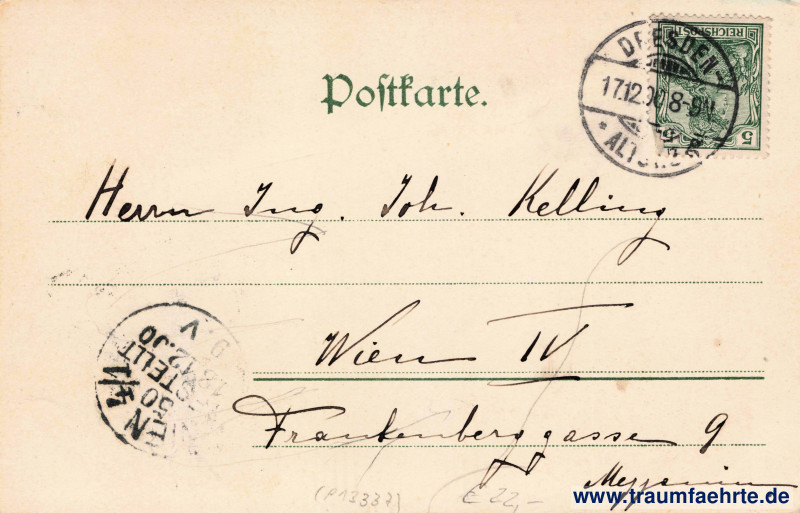 Postkarte.
REICHSPOST
5 5
DRESDEN-
17.12.00 8-9V.
* ALTST.
Herrn Ing. Joh. Kelling
Wien IV
Frankenberggasse 9
Mezzanin
WIEN 4/1
50
BESTELLT
18.12.00
V
(P13337)
€ 22,-
www.traumfaehrte.de